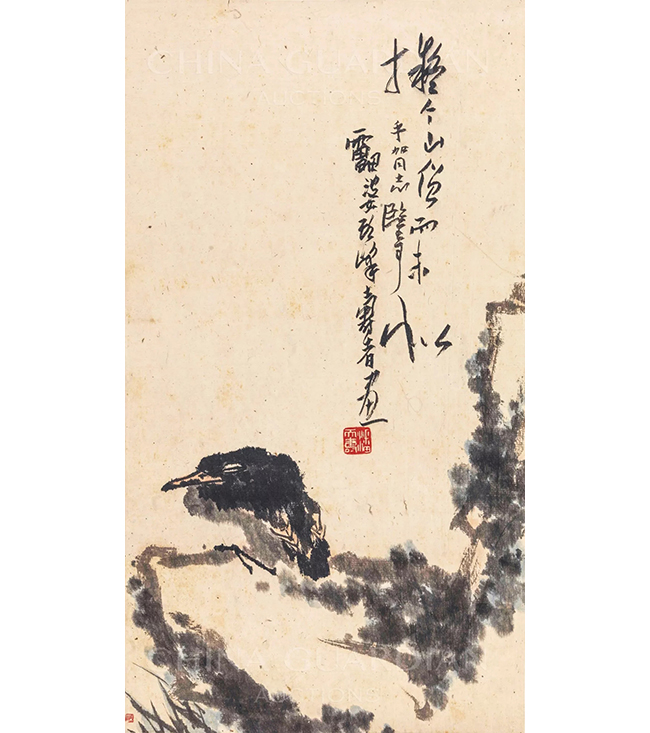 CHINA GUARDIAN
AUCTIONS
擬个山僧而未似
同志
靁婆頭峰壽者畫
CHINA GUARDIAN
AUCTIONS